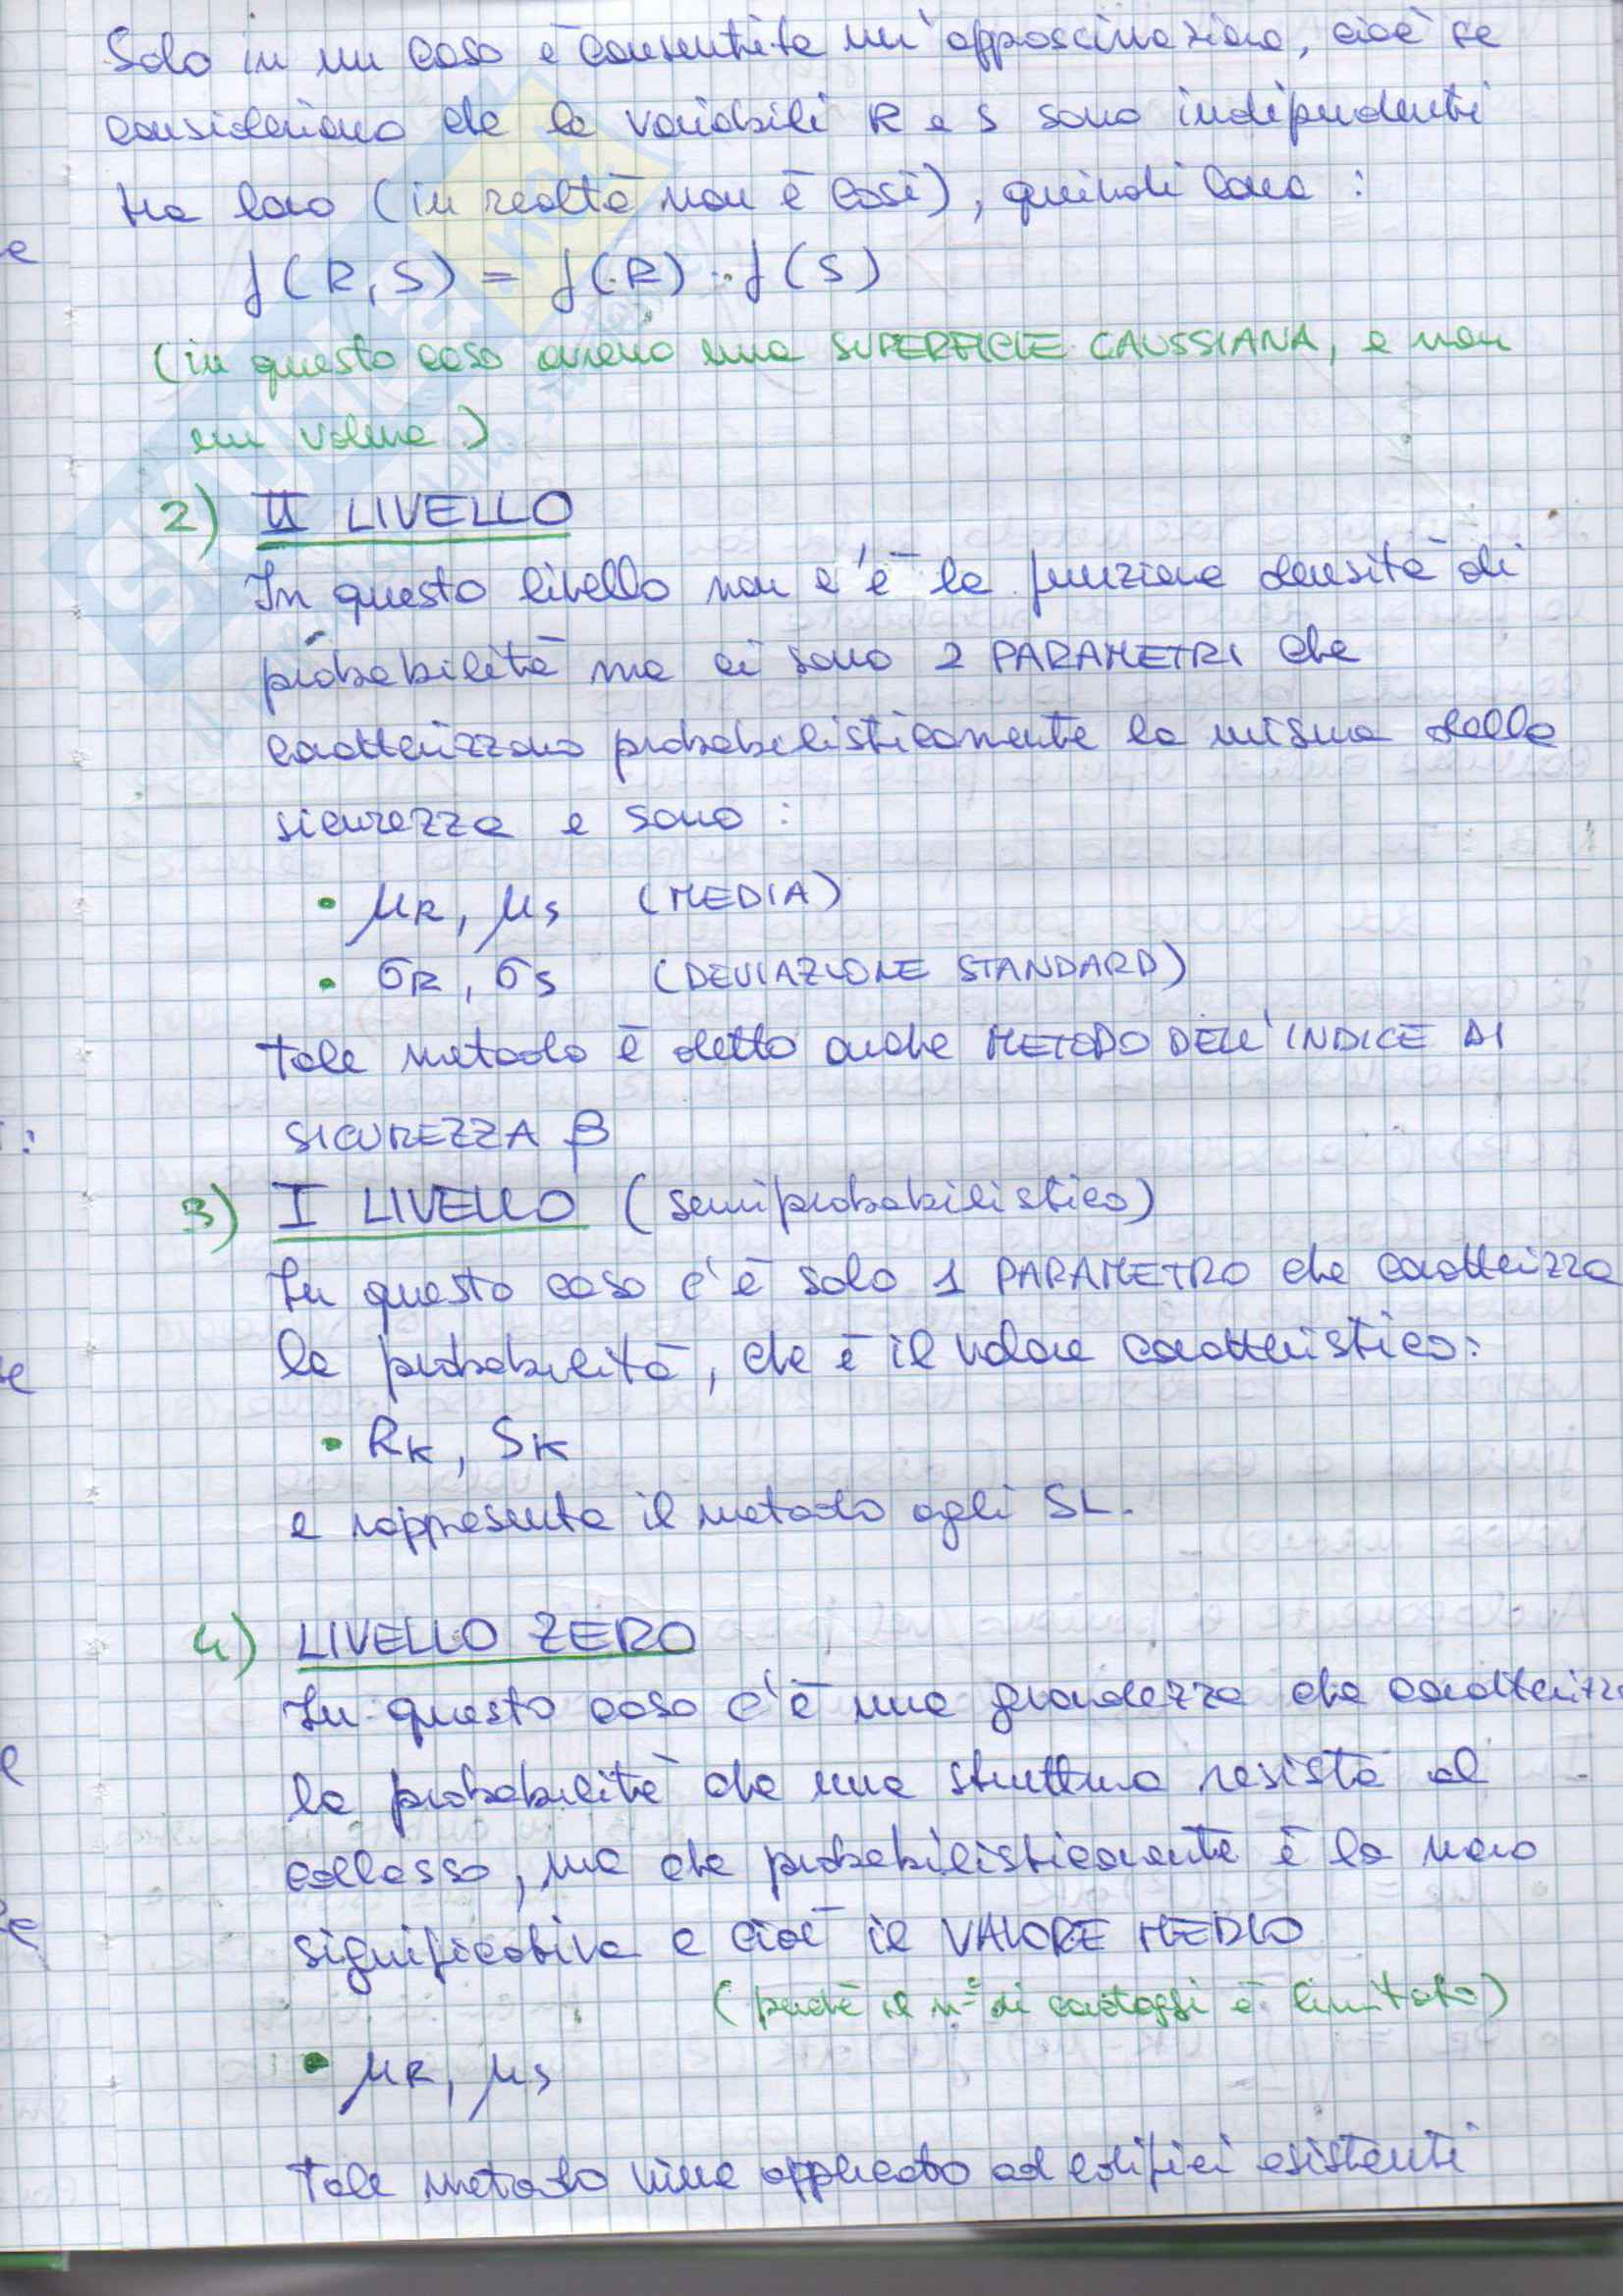 Solo in un caso è consentita un'approssimazione, cioè se
consideriamo che le variabili R e S sono indipendenti
tra loro (in realtà non è così), quindi sarà :
f(R,S) = f(R) · f(S)
(in questo caso avremo una SUPERFICIE GAUSSIANA, e non
un volume)
2) II LIVELLO
In questo livello non c'è la funzione densità di
probabilità ma ci sono 2 PARAMETRI che
caratterizzano probabilisticamente la misura della
sicurezza e sono :
• μR, μS (MEDIA)
• σR, σS (DEVIAZIONE STANDARD)
Tale metodo è detto anche METODO DELL'INDICE DI
SICUREZZA β
3) I LIVELLO (semiprobabilistico)
In questo caso c'è solo 1 PARAMETRO che caratterizza
la probabilità, che è il valore caratteristico:
• RK, SK
e rappresenta il metodo agli SL.
4) LIVELLO ZERO
In questo caso c'è una grandezza che caratterizza
la probabilità che una struttura resista al
collasso, ma che probabilisticamente è la meno
significativa e cioè il VALORE MEDIO
(perchè il n° di carotaggi è limitato)
• μR, μS
Tale metodo viene applicato ad edifici esistenti